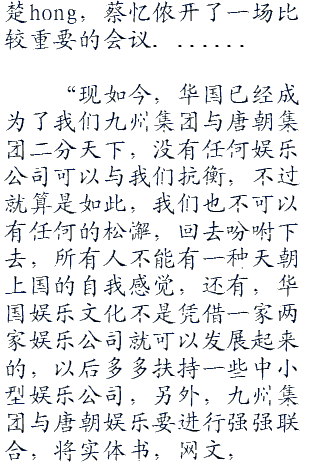 楚hong，蔡忆侬开了一场比
较重要的会议．．．．．．．
“现如今，华国已经成
为了我们九州集团与唐朝集
团二分天下，没有任何娱乐
公司可以与我们抗衡，不过
就算是如此，我们也不可以
有任何的松懈，回去吩咐下
去，所有人不能有一种天朝
上国的自我感觉，还有，华
国娱乐文化不是凭借一家两
家娱乐公司就可以发展起来
的，以后多多扶持一些中小
型娱乐公司，另外，九州集
团与唐朝娱乐要进行强强联
合，将实体书，网文，